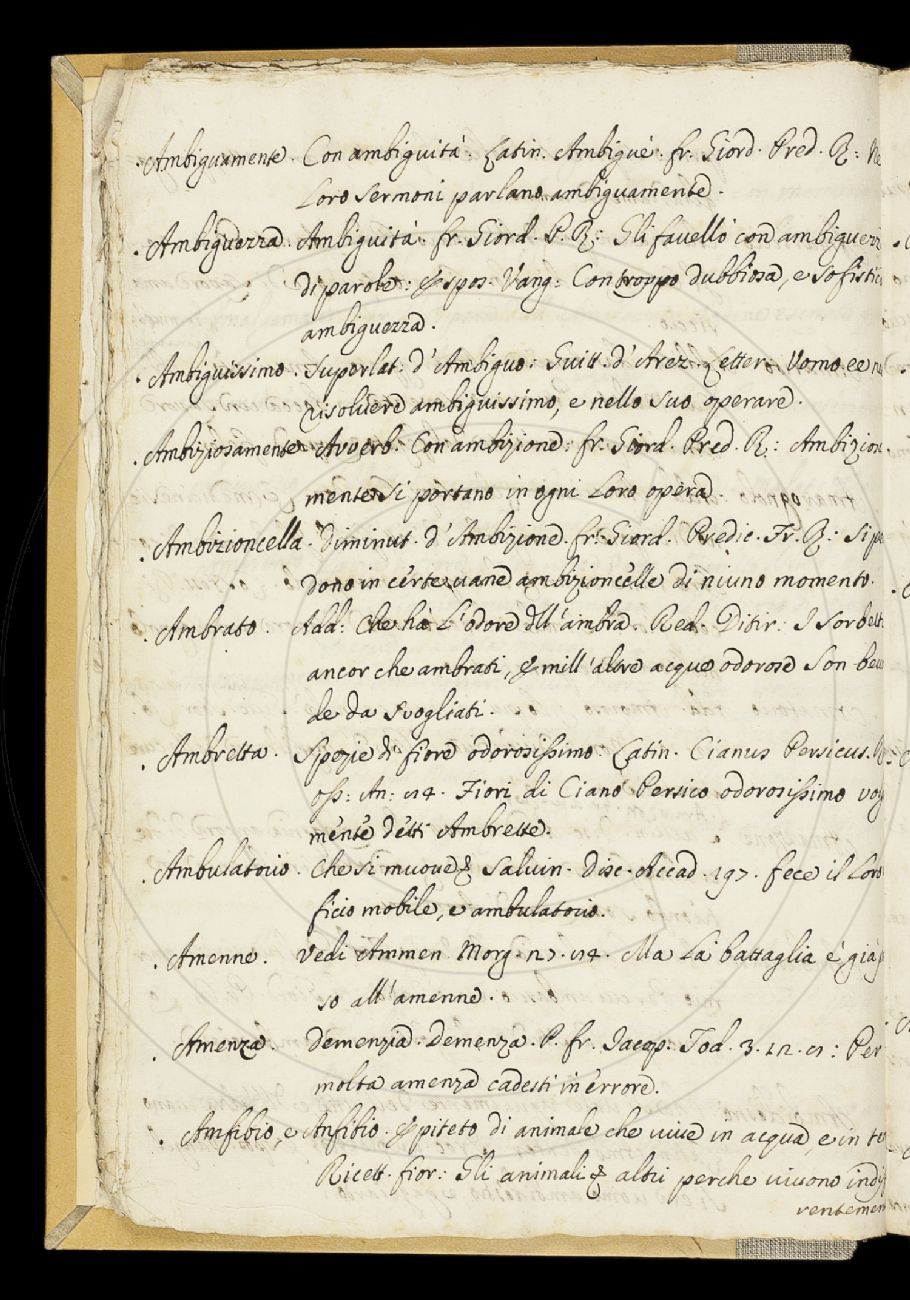 . Ambiguamente. Con ambiguità. Latin. Ambiguè. fr. Giord. Pred. R: Ne
Loro sermoni parlano ambiguamente.
. Ambiguezza. Ambiguità. fr. Giord. P. R: Gli favellò con ambiguezz
di parole: Espos. Vang: Con troppo dubbiosa, e sofistic
ambiguezza.
. Ambiguissimo. Superlat: d'Ambiguo: Guitt. d'Arez. Letter: Uomo ee nel
risolvere ambiguissimo, e nello suo operare.
. Ambiziosamente. Avverb. Con ambizione: fr. Giord. Pred. R: Ambizion
mente si portano in ogni Loro opera.
. Ambizioncella. Diminut. d'Ambizione. fr. Giord. Predic. Fr. R: Si pe
dono in certe vane ambizioncelle di niuno momento.
. Ambrato. Add: Che hà L'odore dell'ambra. Red. Ditir: I Sorbett
ancor che ambrati, e mill'altre acque odorose son bev
de da svogliati.
. Ambretta. Spezie di fiore odorosissimo. Latin. Cianus Persicus.
oss: An: 114. Fiori di Ciano Persico odorosissimo vol
mente detti Ambrette.
. Ambulatorio. Che si muove. Salvin. Disc. Accad. 197. fece il Loro
ficio mobile, e ambulatorio.
. Amenne. Vedi Ammen Morg. 27. 114. Ma La battaglia è già
so all'amenne.
. Amenza. Demenzia. Demenza. P. fr. Jacop. Tod. 3. 12. Per
molta amenza cadesti in errore.
. Amfibio, e Anfibio. Epiteto di animale che vive in acqua, e in te
Ricett. fior: Gli animali & altri perche vivono indif
rentemen